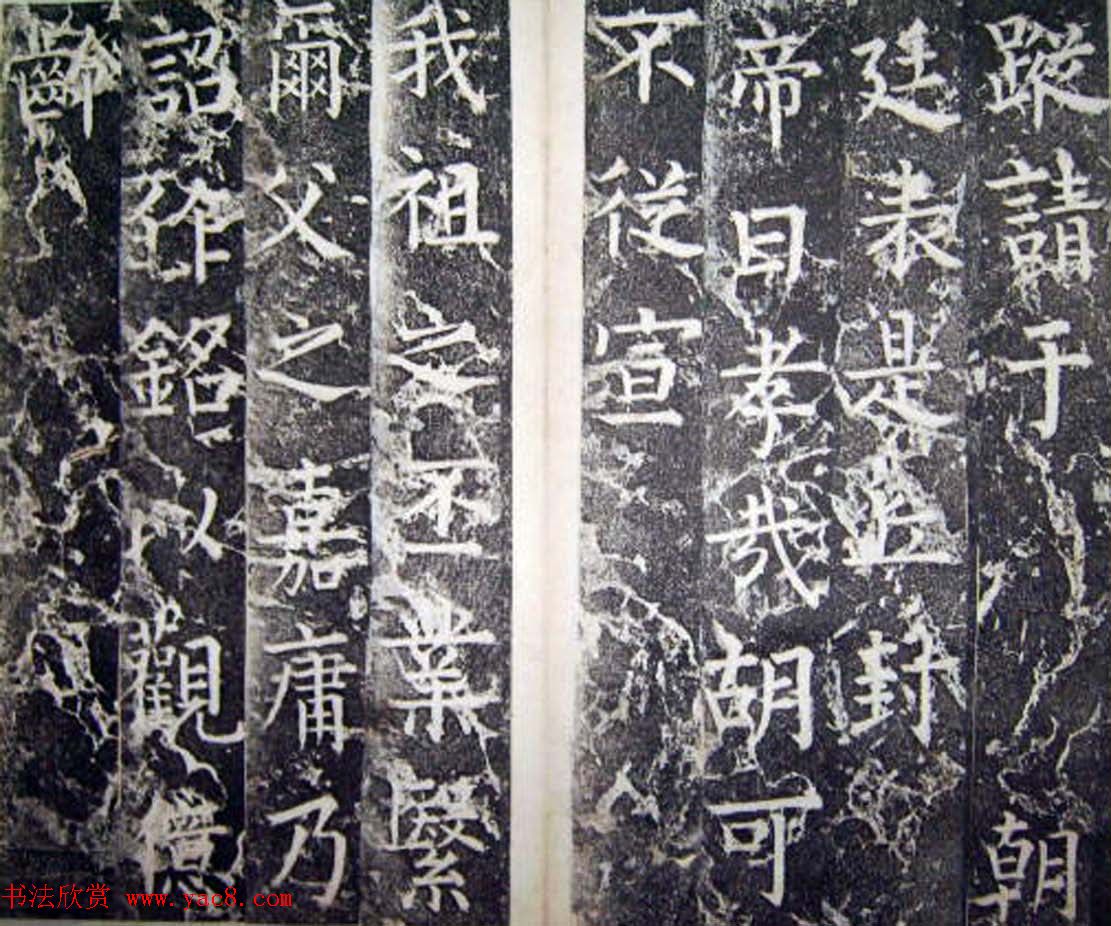 蹤請于朝
廷表是丘封
帝曰孝哉胡可
不從宣
我祖之丕業繄
爾父之嘉庸乃
詔作銘以觀億
齡
书法欣赏 www.yac8.com